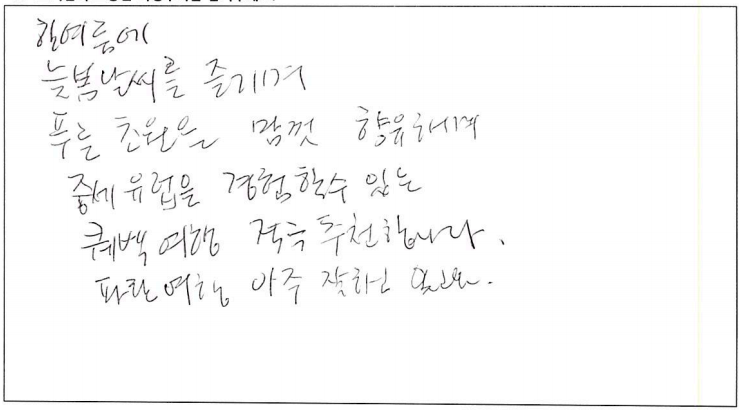 한여름에
늦봄날씨를 즐기며
푸른 초원을 맘껏 향유하며
중세 유럽을 경험할수 있는
퀘백 여행 적극 추천합니다.
파란여행 아주 잘하고 있어요.